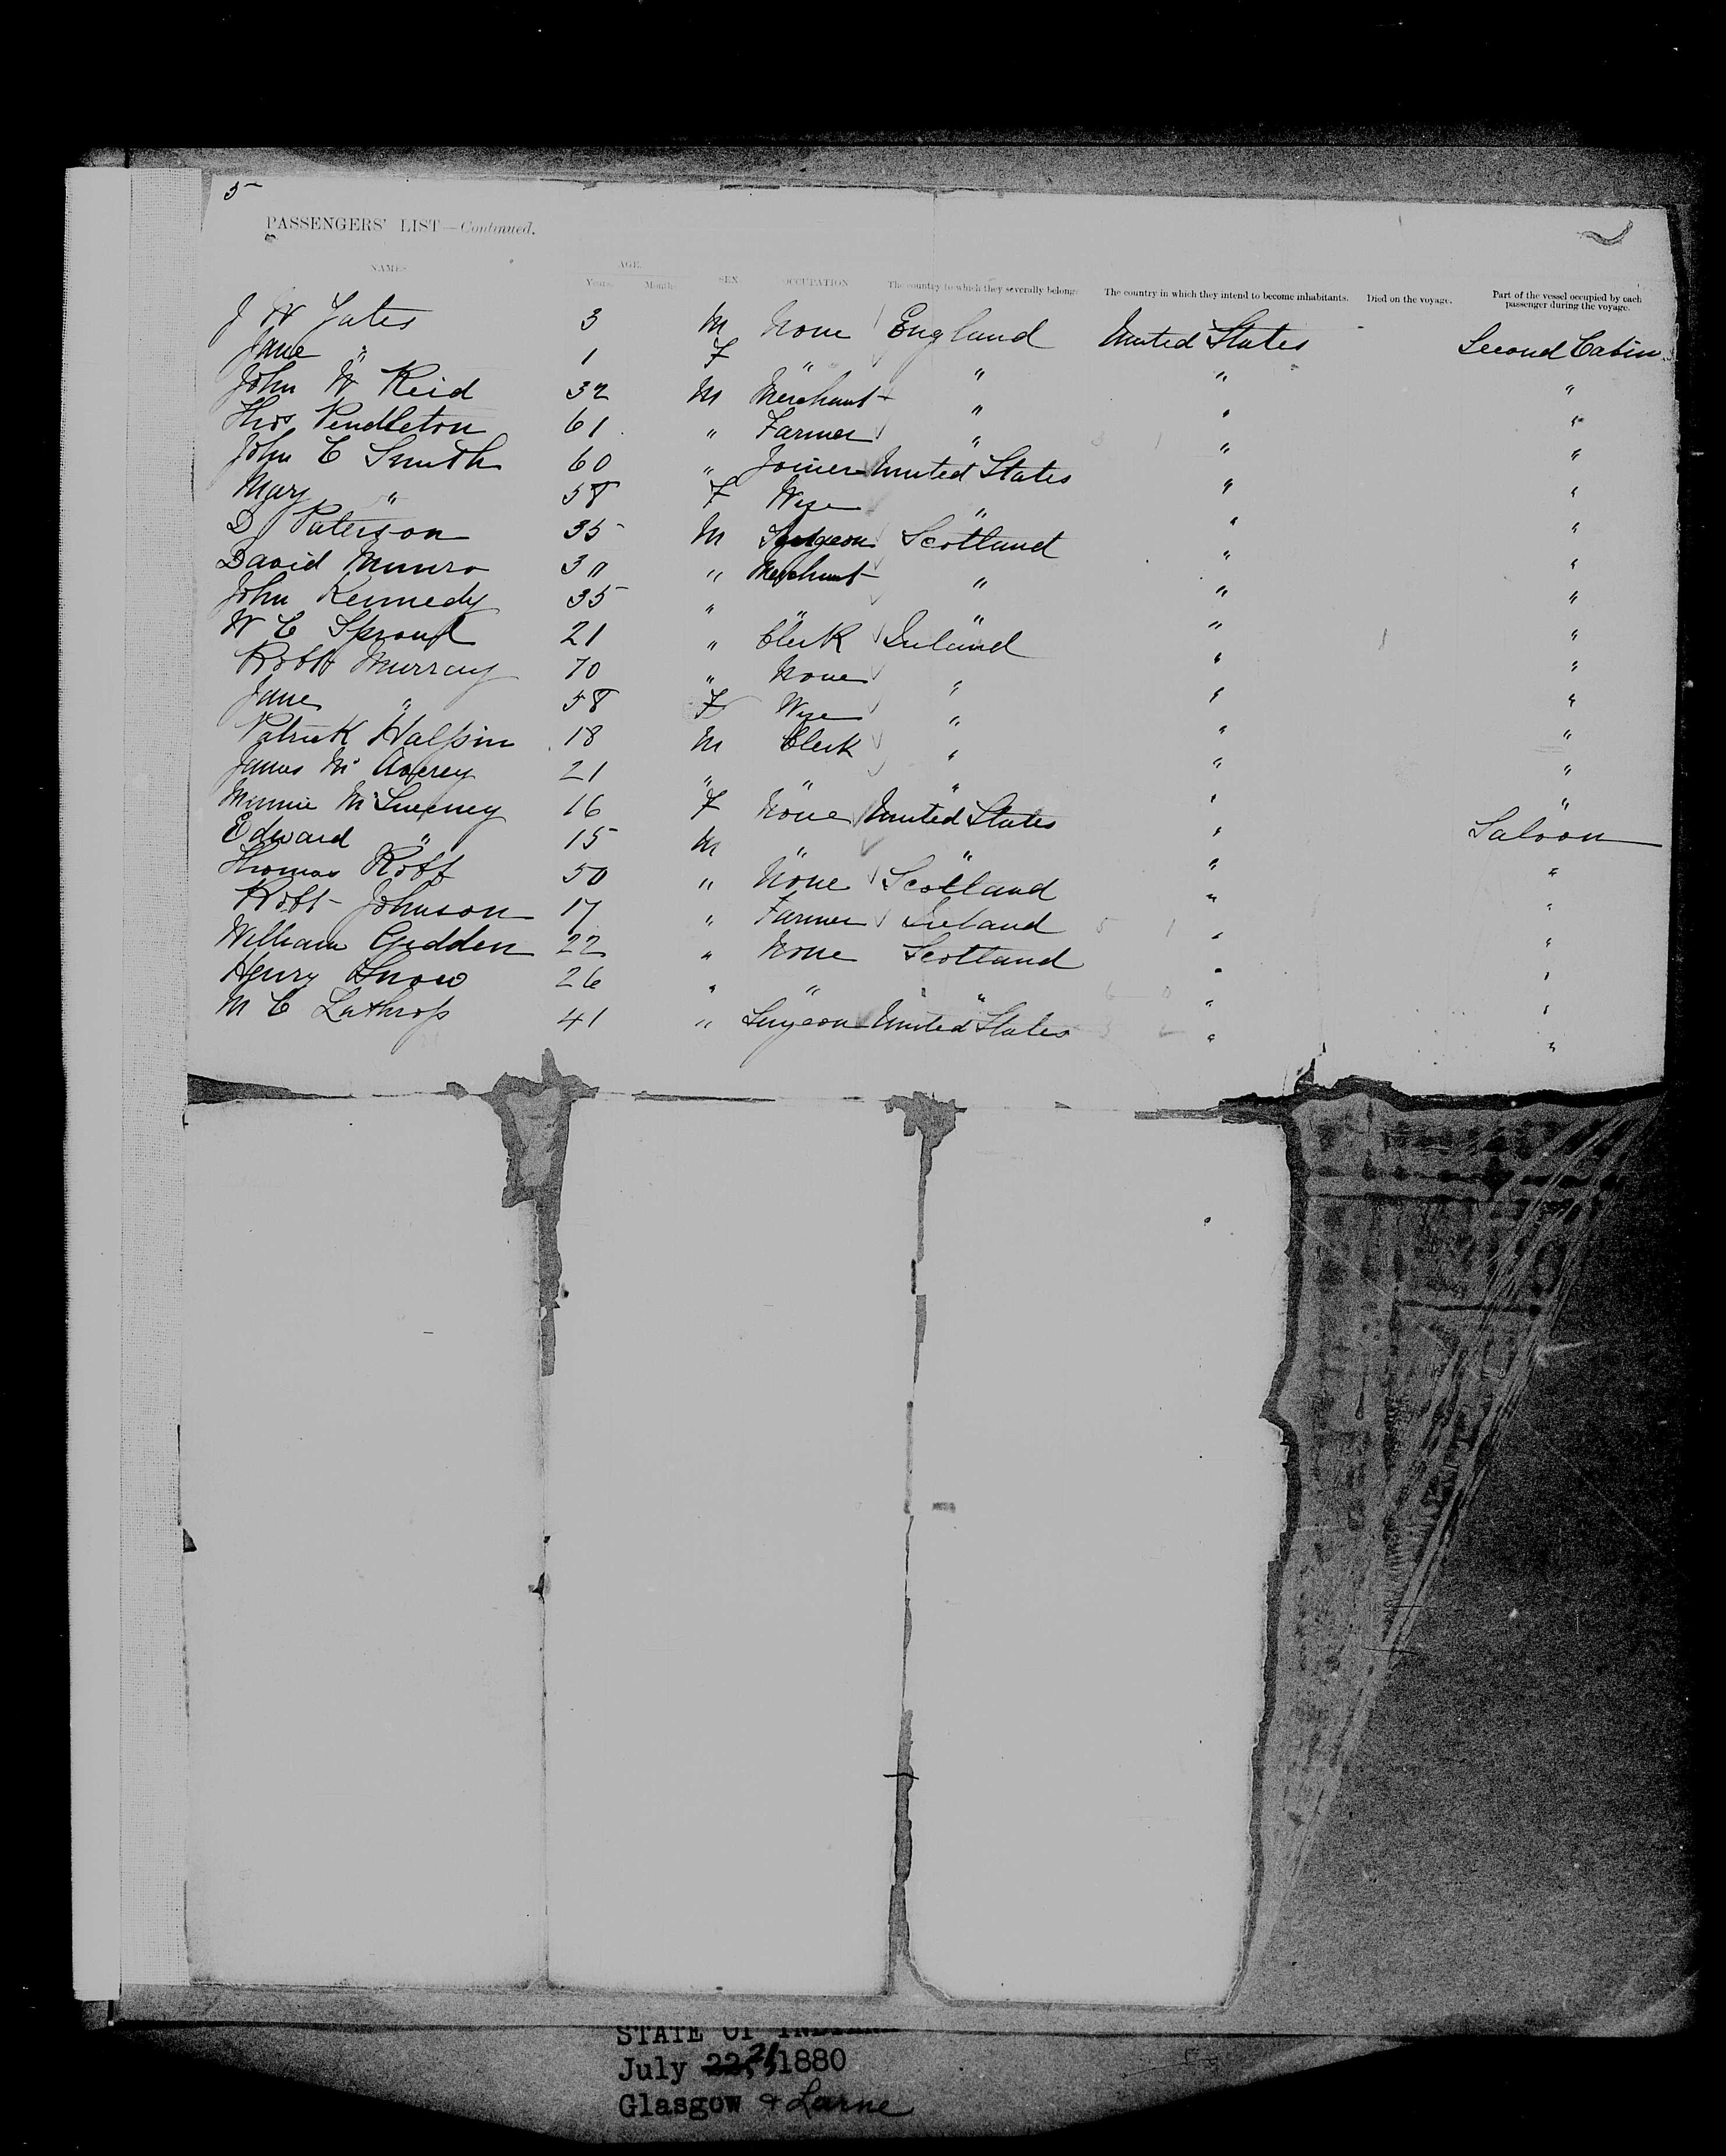 5
PASSENGERS' LIST—Continued.
NAMES AGE. Years. Months. SEX. OCCUPATION The country to which they severally belong. The country in which they intend to become inhabitants. Died on the voyage. Part of the vessel occupied by each passenger during the voyage.
J W Yates 3 M None England United States Second Cabin
Jane " 1 F " " " "
John W Reid 32 M Merchant " " "
Thos Pendleton 61 " Farmer " " "
John C Smith 60 " Joiner United States " "
Mary " 58 F Wife " " "
D Paterson 35 M Surgeon Scotland " "
David Munro 30 " Merchant " " "
John Kennedy 35 " " " " "
W C Sproul 21 " Clerk Ireland " "
Robt Murray 70 " None " " "
Jane " 58 F Wife " " "
Patrick Halpin 18 M Clerk " " "
James Mc 21 " " " " "
Minnie McSweeney 16 F None United States " Saloon
Edward " 15 M " " " "
Thomas Robb 50 " None Scotland " "
Robt Johnson 17 " Farmer Ireland " "
William Gedden 22 " None Scotland " "
Henry Snow 26 " " " " "
M C Lathrop 41 " Surgeon United States " "
STATE OF INDIANA
July 22, 21 1880
Glasgow & Larne